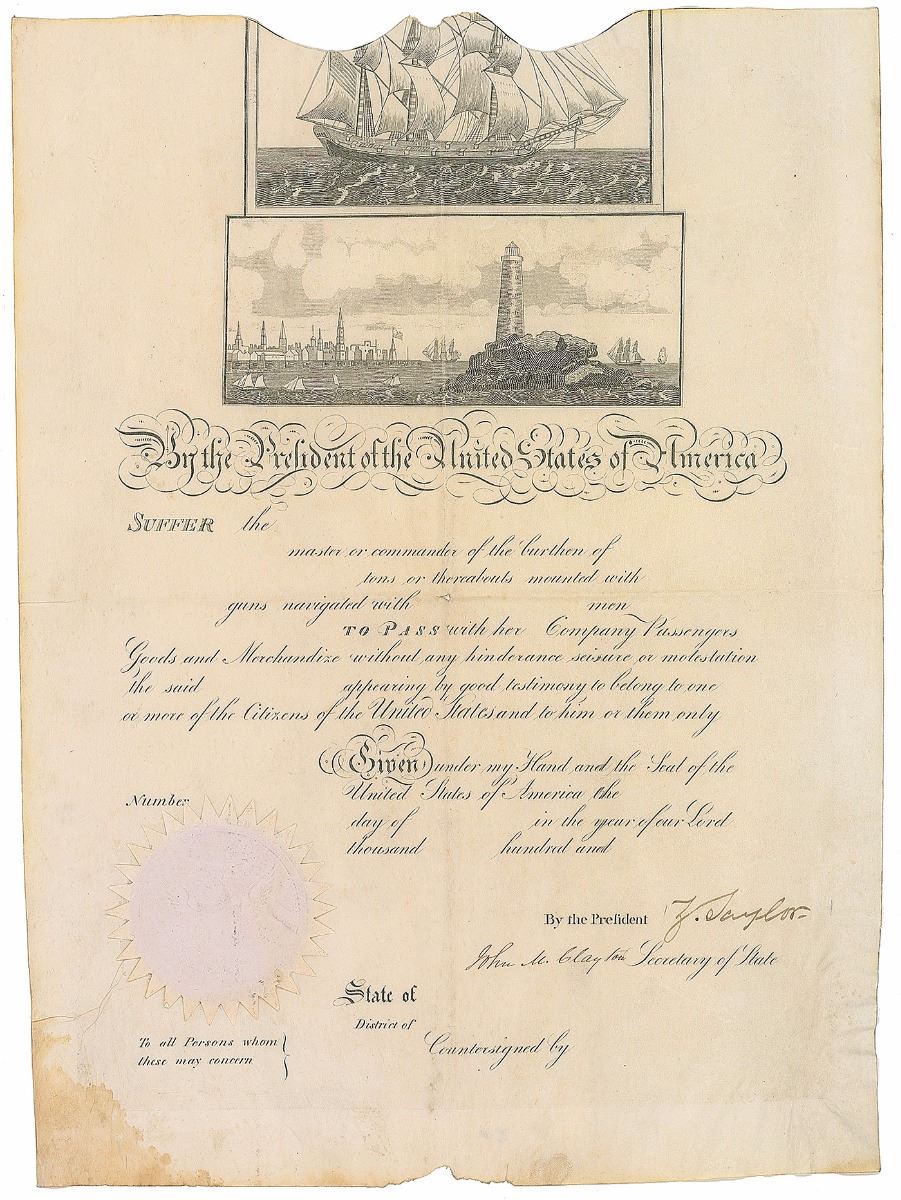 By the President of the United States of America
SUFFER the
master or commander of the burthen of
tons or thereabouts mounted with
guns navigated with men
TO PASS with her Company Passengers
Goods and Merchandize without any hinderance seisure or molestation
the said appearing by good testimony to belong to one
or more of the Citizens of the United States and to him or them only
Given under my Hand and the Seal of the
United States of America the
day of in the year of our Lord
thousand hundred and
Number
By the President Z. Taylor
John M. Clayton Secretary of State
State of
District of
Countersigned by
To all Persons whom
these may concern